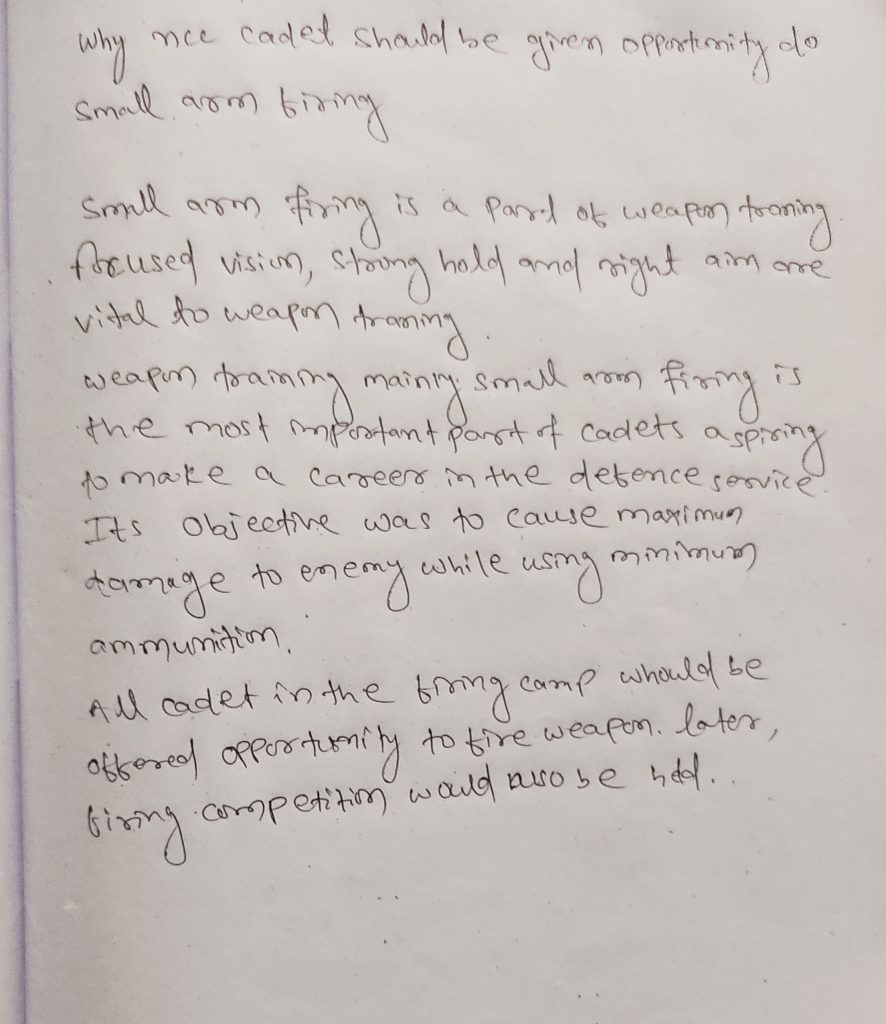 Why ncc cadet should be given opportunity do
small arm firing
Small arm firing is a part of weapon traning.
focused vision, strong hold and right aim are
vital to weapon traning.
weapon training mainly small arm firing is
the most important part of cadets aspiring
to make a career in the defence service.
Its objective was to cause maximum
damage to enemy while using minimum
ammunition.
All cadet in the firing camp whould be
offered opportunity to fire weapon. later,
firing competition would also be held.